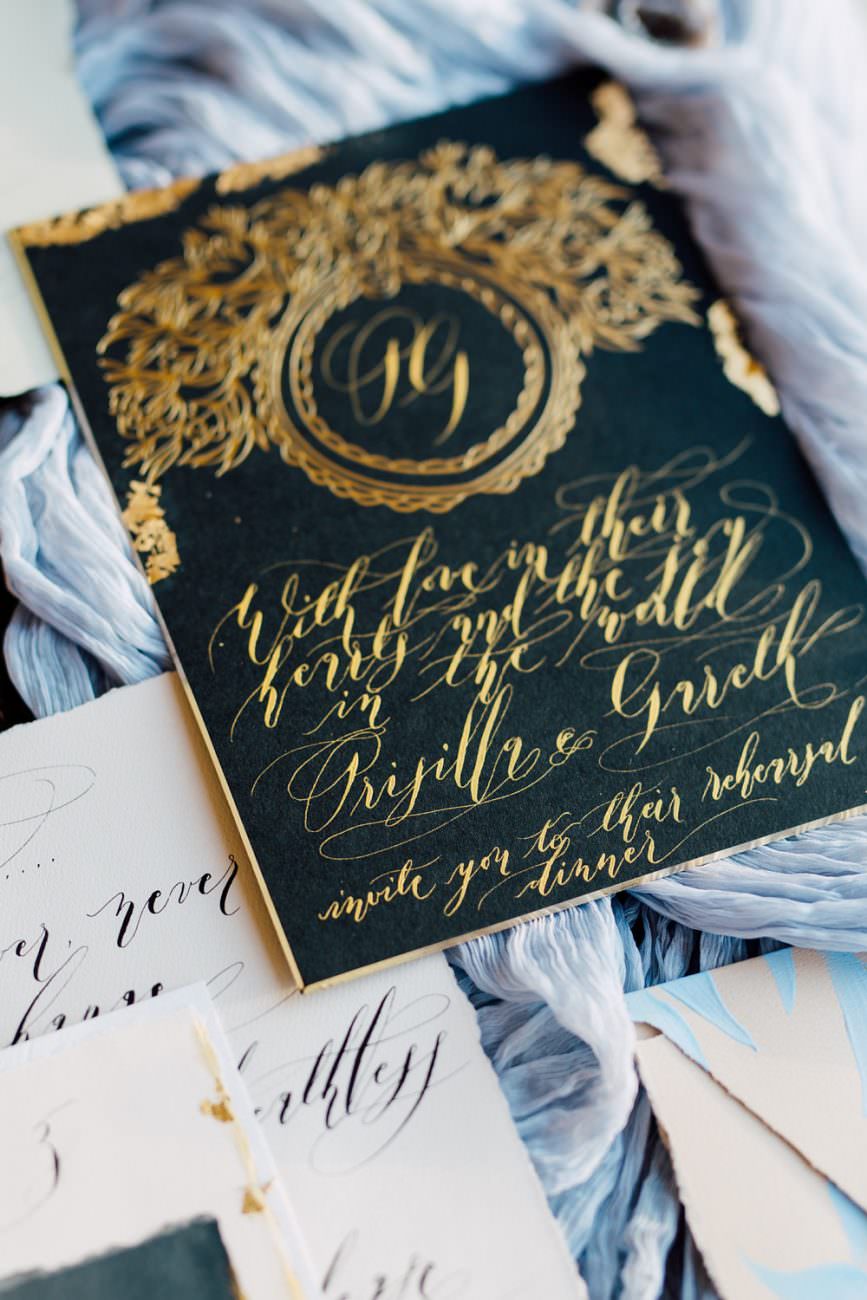 PG
With love in their
hearts and the joy
in the world
Prisilla & Gareth
invite you to their rehearsal
dinner
never
change